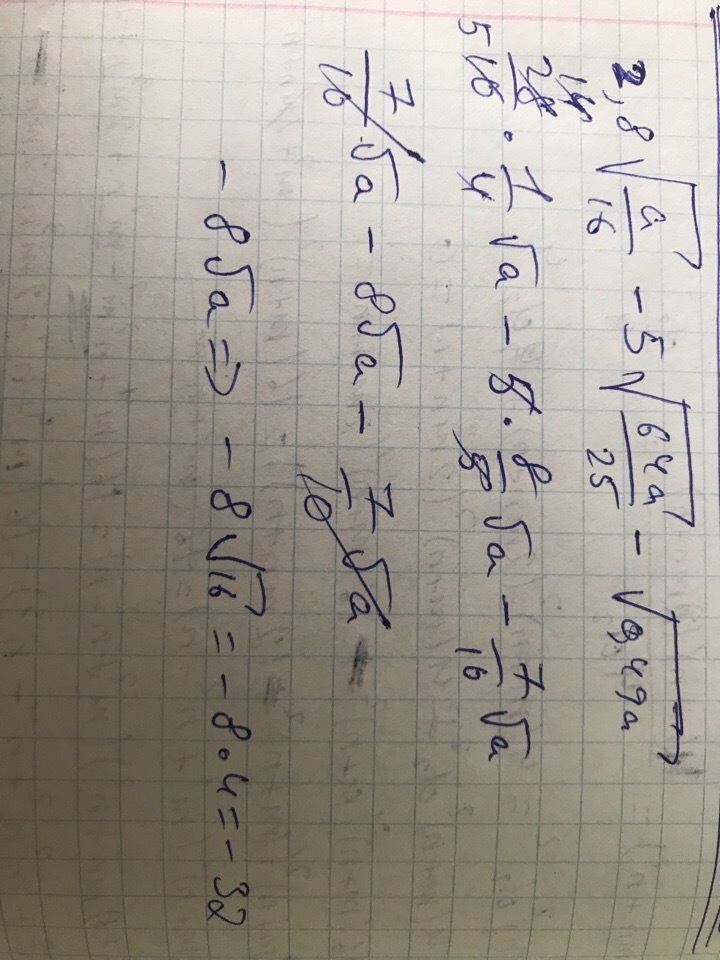 2,8√(a/16) - 5√(64a/25) - √(0,49a)
14 28/10 5 · 1/4 √a - 5 · 8/5 √a - 7/10 √a
7/10 √a - 8√a - 7/10 √a
- 8√a => - 8√16 = - 8 · 4 = - 32